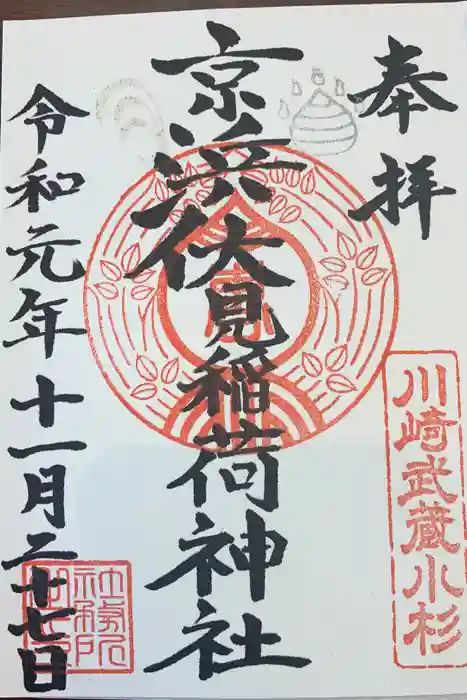 奉拝
川崎武蔵小杉
京浜伏見稲荷神社
令和元年十一月二十七日
社務所